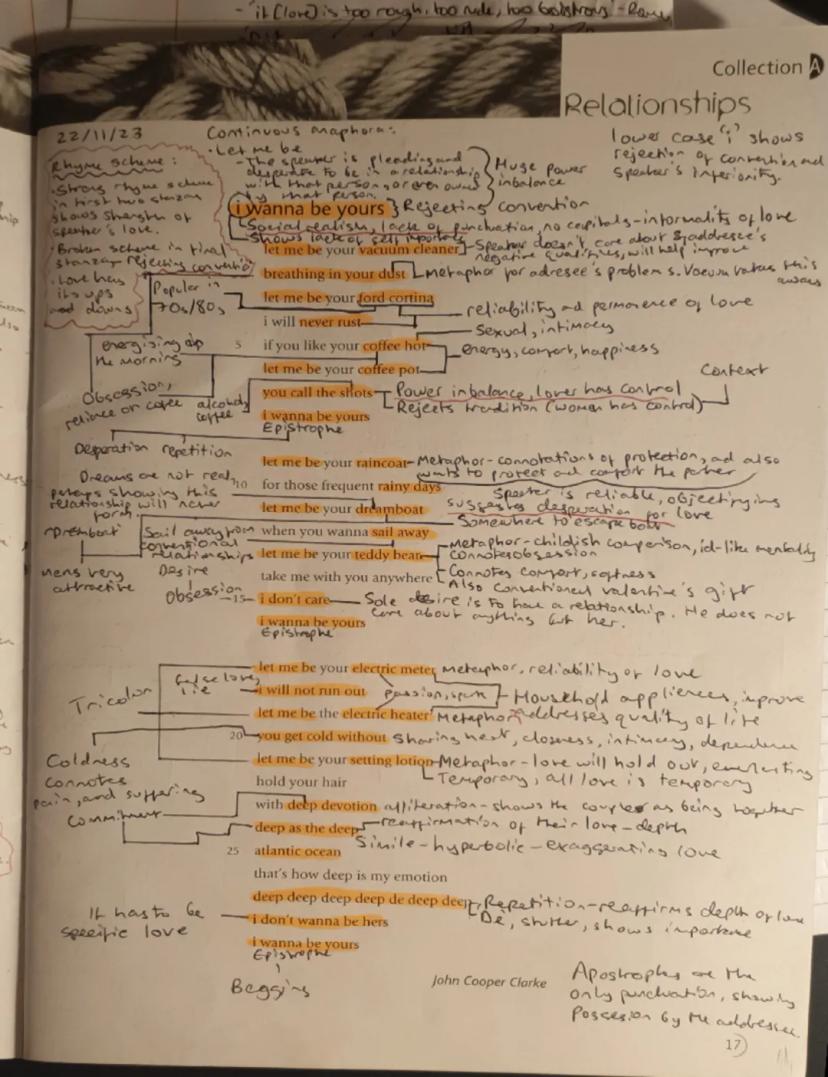 - 'it (love) is too rough, too rude, too boistrous' - Romeo
Collection A
Relationships
22/11/23
Continuous anaphora:
· Let me be
- The speaker is pleading and
desperate to be in a relationship
with that person, or even owned
by that person.
Huge power
inbalance
lower case 'i' shows
rejection of convention and
speaker's inferiority.
Rhyme scheme:
· Strong rhyme scheme
in first two stanzas
shows strength of
speaker's love.
· Broken scheme in final
stanza - rejecting convention
· Love has
its ups
and downs
i wanna be yours } Rejecting convention
Social realism, lack of punctuation, no capitals - informality of love
Shows lack of self importance
let me be your vacuum cleaner
Speaker doesn't care about addressee's
negative qualities, will help improve
breathing in your dust
Metaphor for adressee's problems. Vacuum takes this
away
Popular in
70s/80s
let me be your ford cortina
reliability and permanence of love
i will never rust
Sexual, intimacy
5 if you like your coffee hot
energy, comfort, happiness
energising up
the morning
let me be your coffee pot
Obsession,
reliance on coffee
alcohol,
coffee
you call the shots
Power inbalance, lover has control
Rejects tradition (women has control)
Context
i wanna be yours
Epistrophe
Desperation repetition
let me be your raincoat
Metaphor - connotations of protection, and also
wants to protect and comfort the partner
10 for those frequent rainy days
Dreams are not real,
perhaps showing this
relationship will never
form
let me be your dreamboat
Speaker is reliable, objectifying
suggests desperation for love
Somewhere to escape both
when you wanna sail away
Sail away from
conventional
relationships
Dremboat
means very
attractive
let me be your teddy bear
Metaphor - childish comparison, id-like mentality
Connotes obsession
take me with you anywhere
Connotes comfort, softness
Also conventional valentine's gift
Desire
Obsession
15 i don't care
Sole desire is to have a relationship. He does not
care about anything but her.
i wanna be yours
Epistrophe
let me be your electric meter
Metaphor, reliability of love
false love,
lie
i will not run out
passion, spark
Household appliences, improve
Tricolon
let me be the electric heater
Metaphor
addresses quality of life
20 you get cold without
Sharing heat, closeness, intimacy, dependence
Coldness
connotes
pain, and suffering
let me be your setting lotion
Metaphor - love will hold out, everlasting
Temporary, all love is temporary
hold your hair
Commitment
with deep devotion
alliteration - shows the couple as being together
deep as the deep
reaffirmation of their love - depth
25 atlantic ocean
Simile - hyperbolic - exaggerating love
that's how deep is my emotion
deep deep deep deep de deep deep
Repetition - reaffirms depth of love
De, stutter, shows importance
It has to be
specific love
i don't wanna be hers
i wanna be yours
Epistrophe
Begging
John Cooper Clarke
Apostrophes are the
only punctuation, showing
Possesion by the addressee.
17